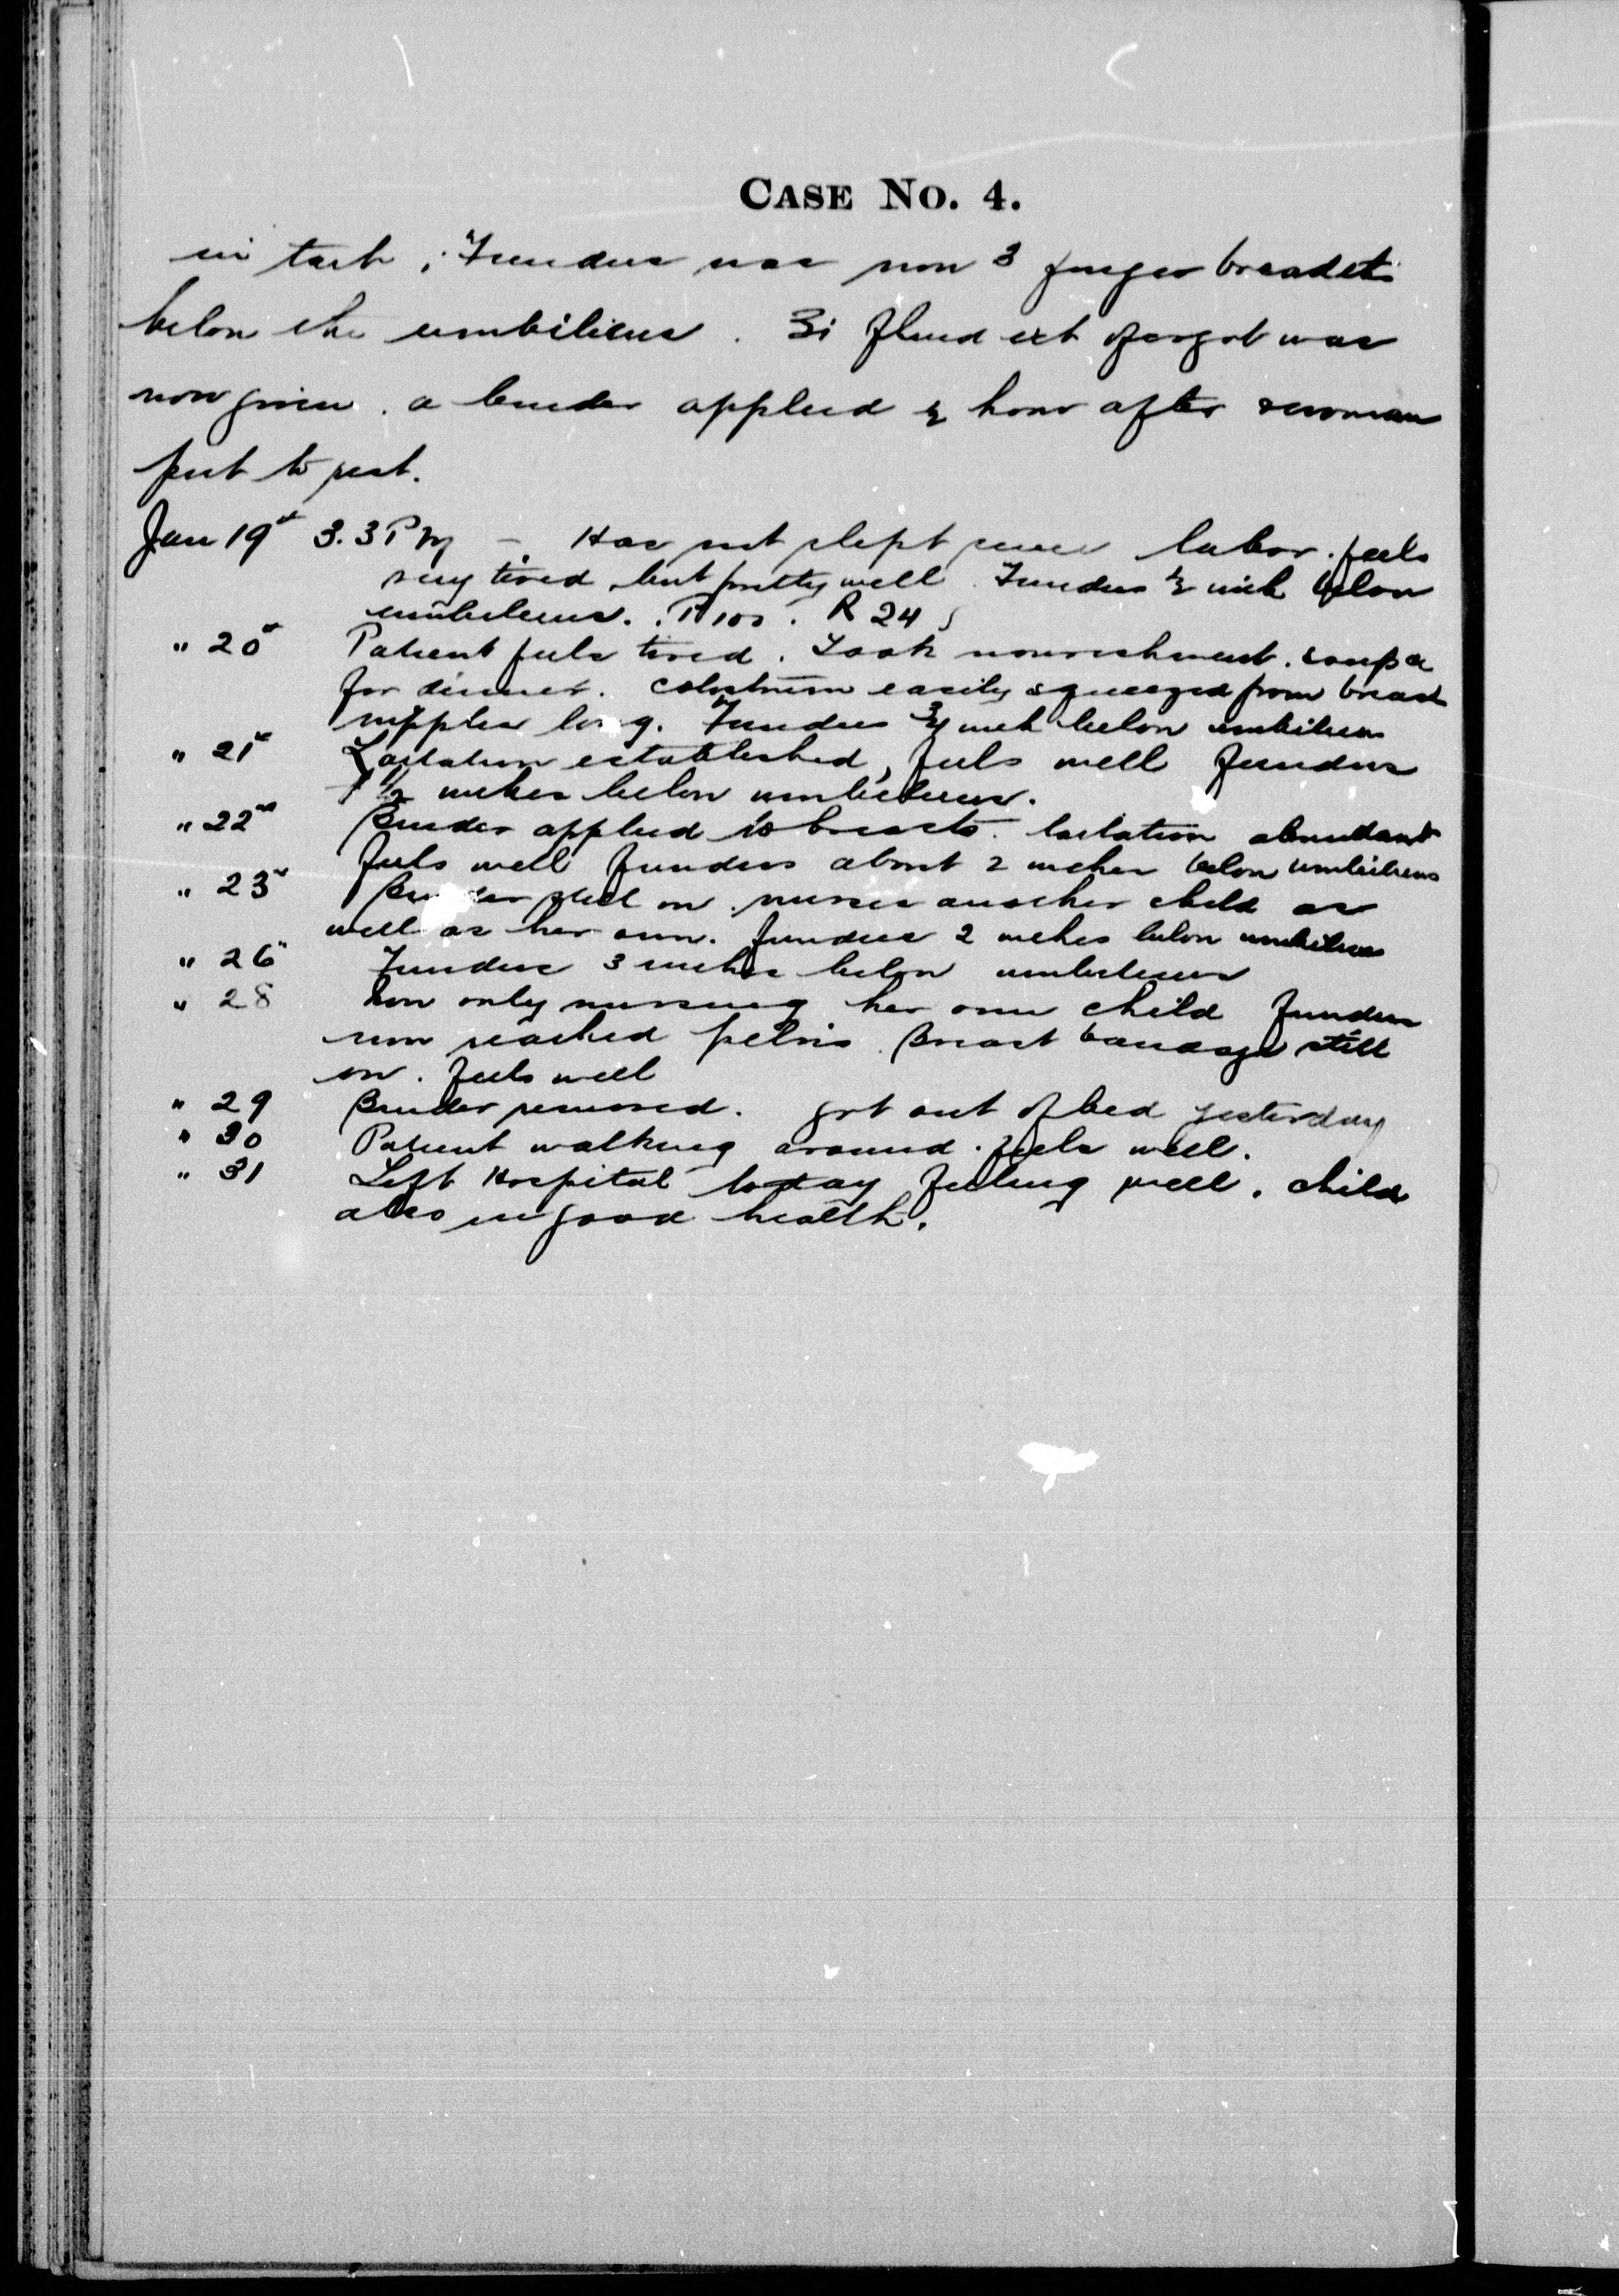 CASE NO. 4.
in tact; Fundus was now 3 finger breadths
below the umbilicus. ʒi fluid ext of ergot was
now given. a binder applied ½ hour after & woman
put to rest.
Jan 19th 3.3 PM - Has not slept since labor. feels
very tired, but pretty well. Fundus ½ inch below
umbilicus. P 100. R 24
" 20th Patient feels tired. Took nourishment. soup &
for dinner. colostrum easily squeezed from breast
nipples long. Fundus ¾ inch below umbilicus
" 21st Lactation established, feels well fundus
1½ inches below umbilicus.
" 22nd Binder applied to breasts. lactation abundant
feels well fundus about 2 inches below umbilicus
" 23rd Binder still on. nurses another child as
well as her own. fundus 2 inches below umbilicus
" 26th Fundus 3 inches below umbilicus
" 28 now only nursing her own child fundus
now reached pelvis. Breast bandage still
on. feels well
" 29 Binder removed. got out of bed yesterday
" 30 Patient walking around. feels well.
" 31 Left Hospital today feeling well. child
also in good health.